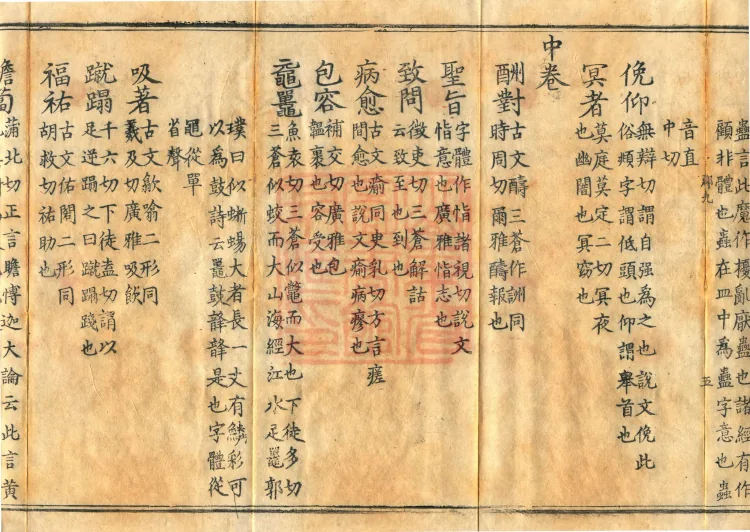 蠱言此魔作擾亂厭蠱也諸經有作
顧非體也蟲在皿中為蠱字意也蟲
音直
中切
那九
五
俛仰無辯切謂自强為之也說文俛此
俗頫字謂低頭也仰謂舉首也
冥者莫庭莫定二切冥夜
也幽闇也冥窈也
中卷
酬對古文醻三蒼作詶同
時周切爾雅醻報也
聖旨字體作恉諸視切說文
恉意也廣雅恉志也
致問徵吏切三蒼解詁
云致至也到也
病愈古文瘉同臾乳切方言瘥
間愈也說文瘉病瘳也
包容補交切廣雅包
韞裹也容受也
黿鼉魚袁切三蒼似鼈而大也下徒多切
三蒼似蛟而大山海經江水足鼉郭
璞曰似蜥蜴大者長一丈有鱗彩可
以為鼓詩云鼉鼓韸韸是也字體從
黽從單
省聲
吸著古文歙噏二形同
羲及切廣雅吸飲
蹴蹋千六切下徒盍切謂以
足逆蹋之曰蹴蹋踐也
福祐古文佑閣二形同
胡救切祐助也
蔔蒲北切正言瞻博迦大論云此言黃